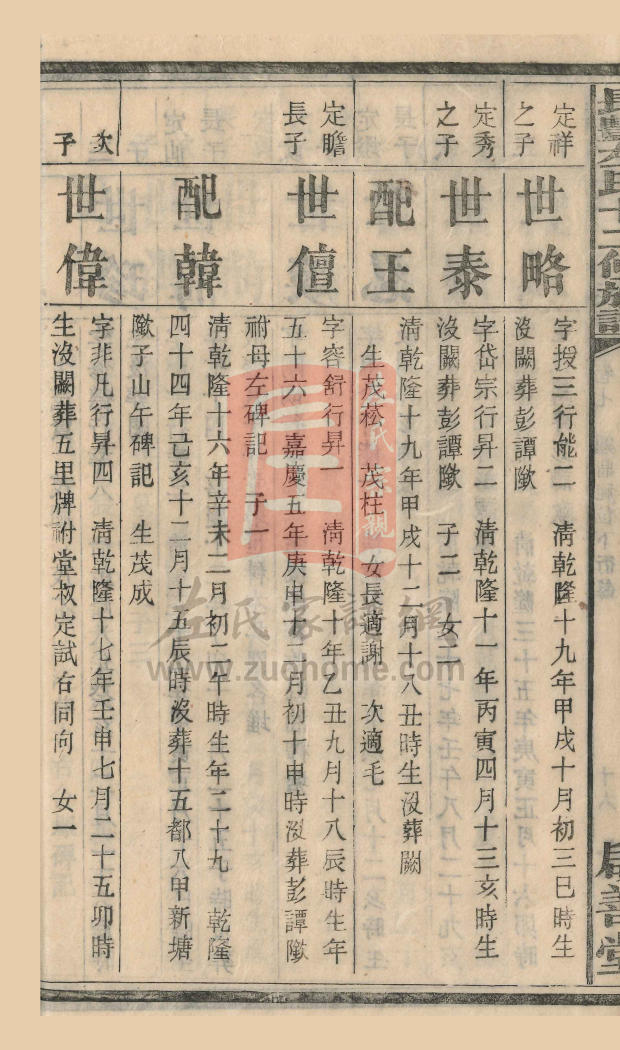 定祥
之子
世略
字授三行能二 清乾隆十九年甲戌十月初三巳時生
沒闕葬彭譚歟
定秀
之子
世泰
字岱宗行昇二 清乾隆十一年丙寅四月十三亥時生
沒闕葬彭譚歟 子二 女二
配王
清乾隆十九年甲戌十二月十八丑時生沒葬闕
生茂菘 茂柱 女長適謝 次適毛
定瞻
長子
世儃
字容舒行昇一 清乾隆十年乙丑九月十八辰時生年
五十六 嘉慶五年庚申十二月初十申時沒葬彭譚歟
祔母左碑記 子一
配韓
清乾隆十六年辛未二月初二午時生年二十九 乾隆
四十四年己亥十二月十五辰時沒葬十五都八甲新塘
歟子山午碑記 生茂成
次
子
世偉
字非凡行昇四 清乾隆十七年壬申七月二十五卯時
生沒闕葬五里牌祔堂叔定試右同向 女一
左氏家譜網
www.zuohome.com